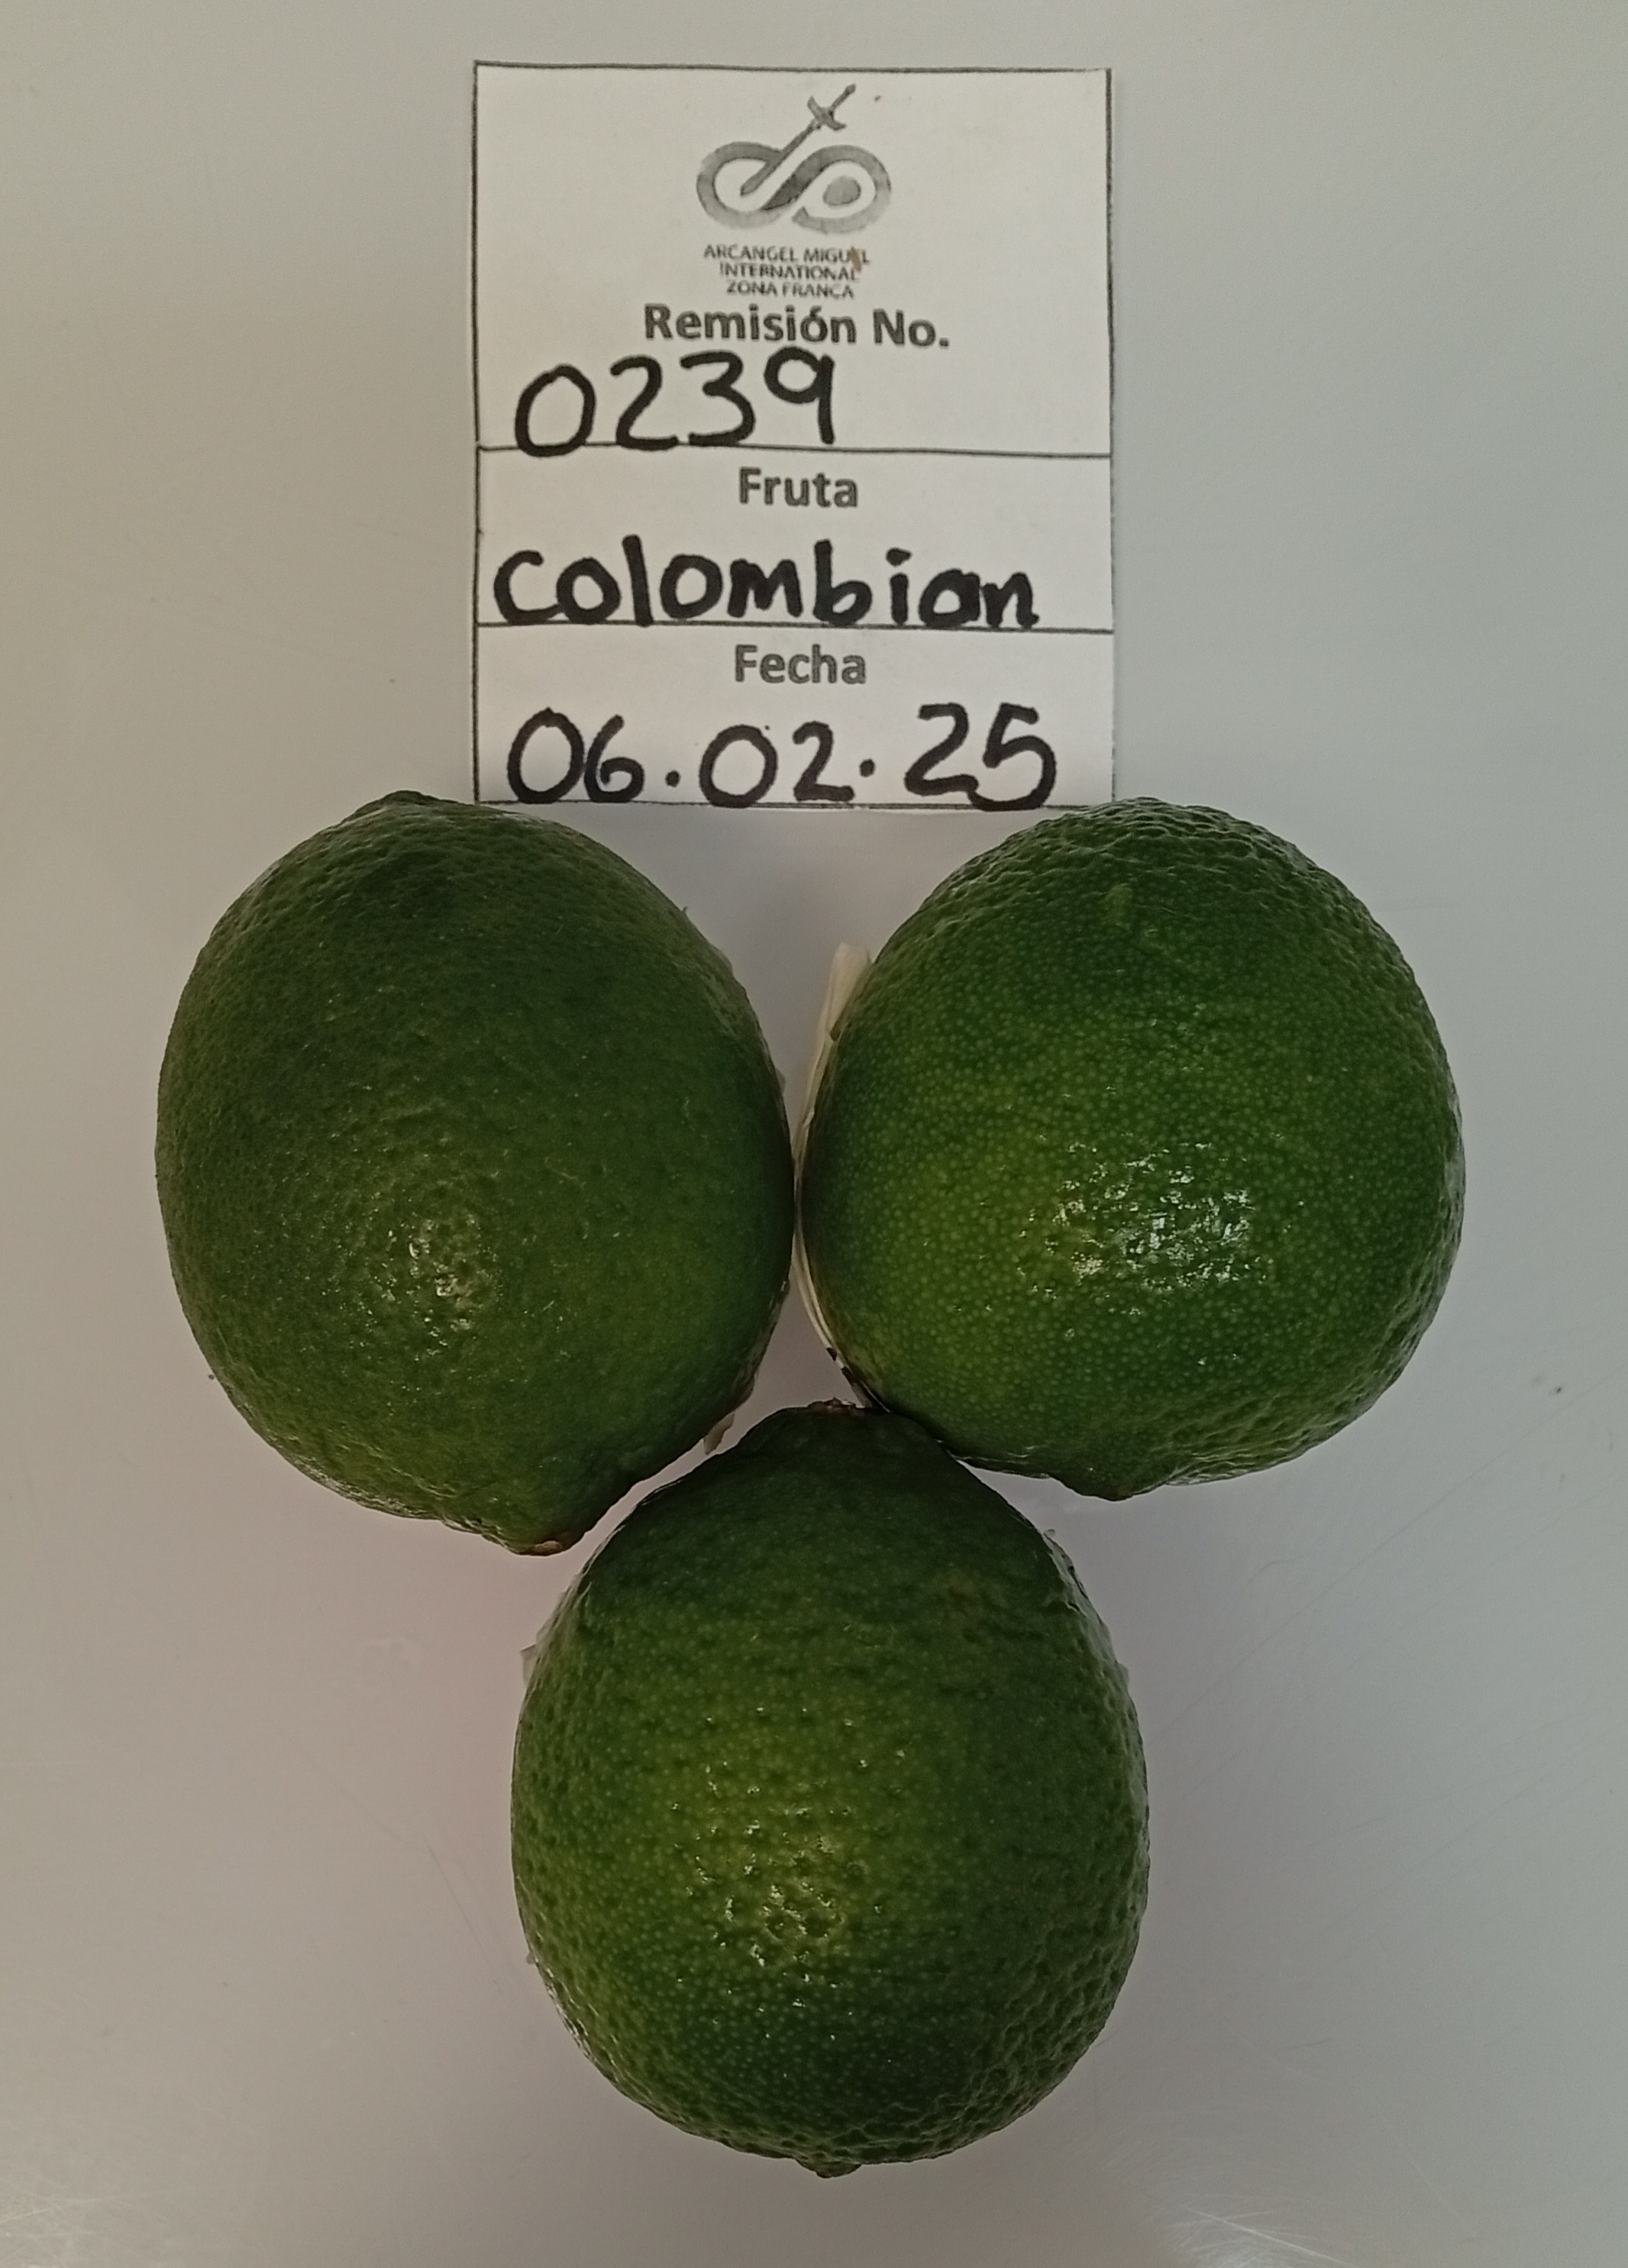 ARCANGEL MIGUEL
INTERNATIONAL
ZONA FRANCA
Remisión No.
0239
Fruta
Colombian
Fecha
06.02.25